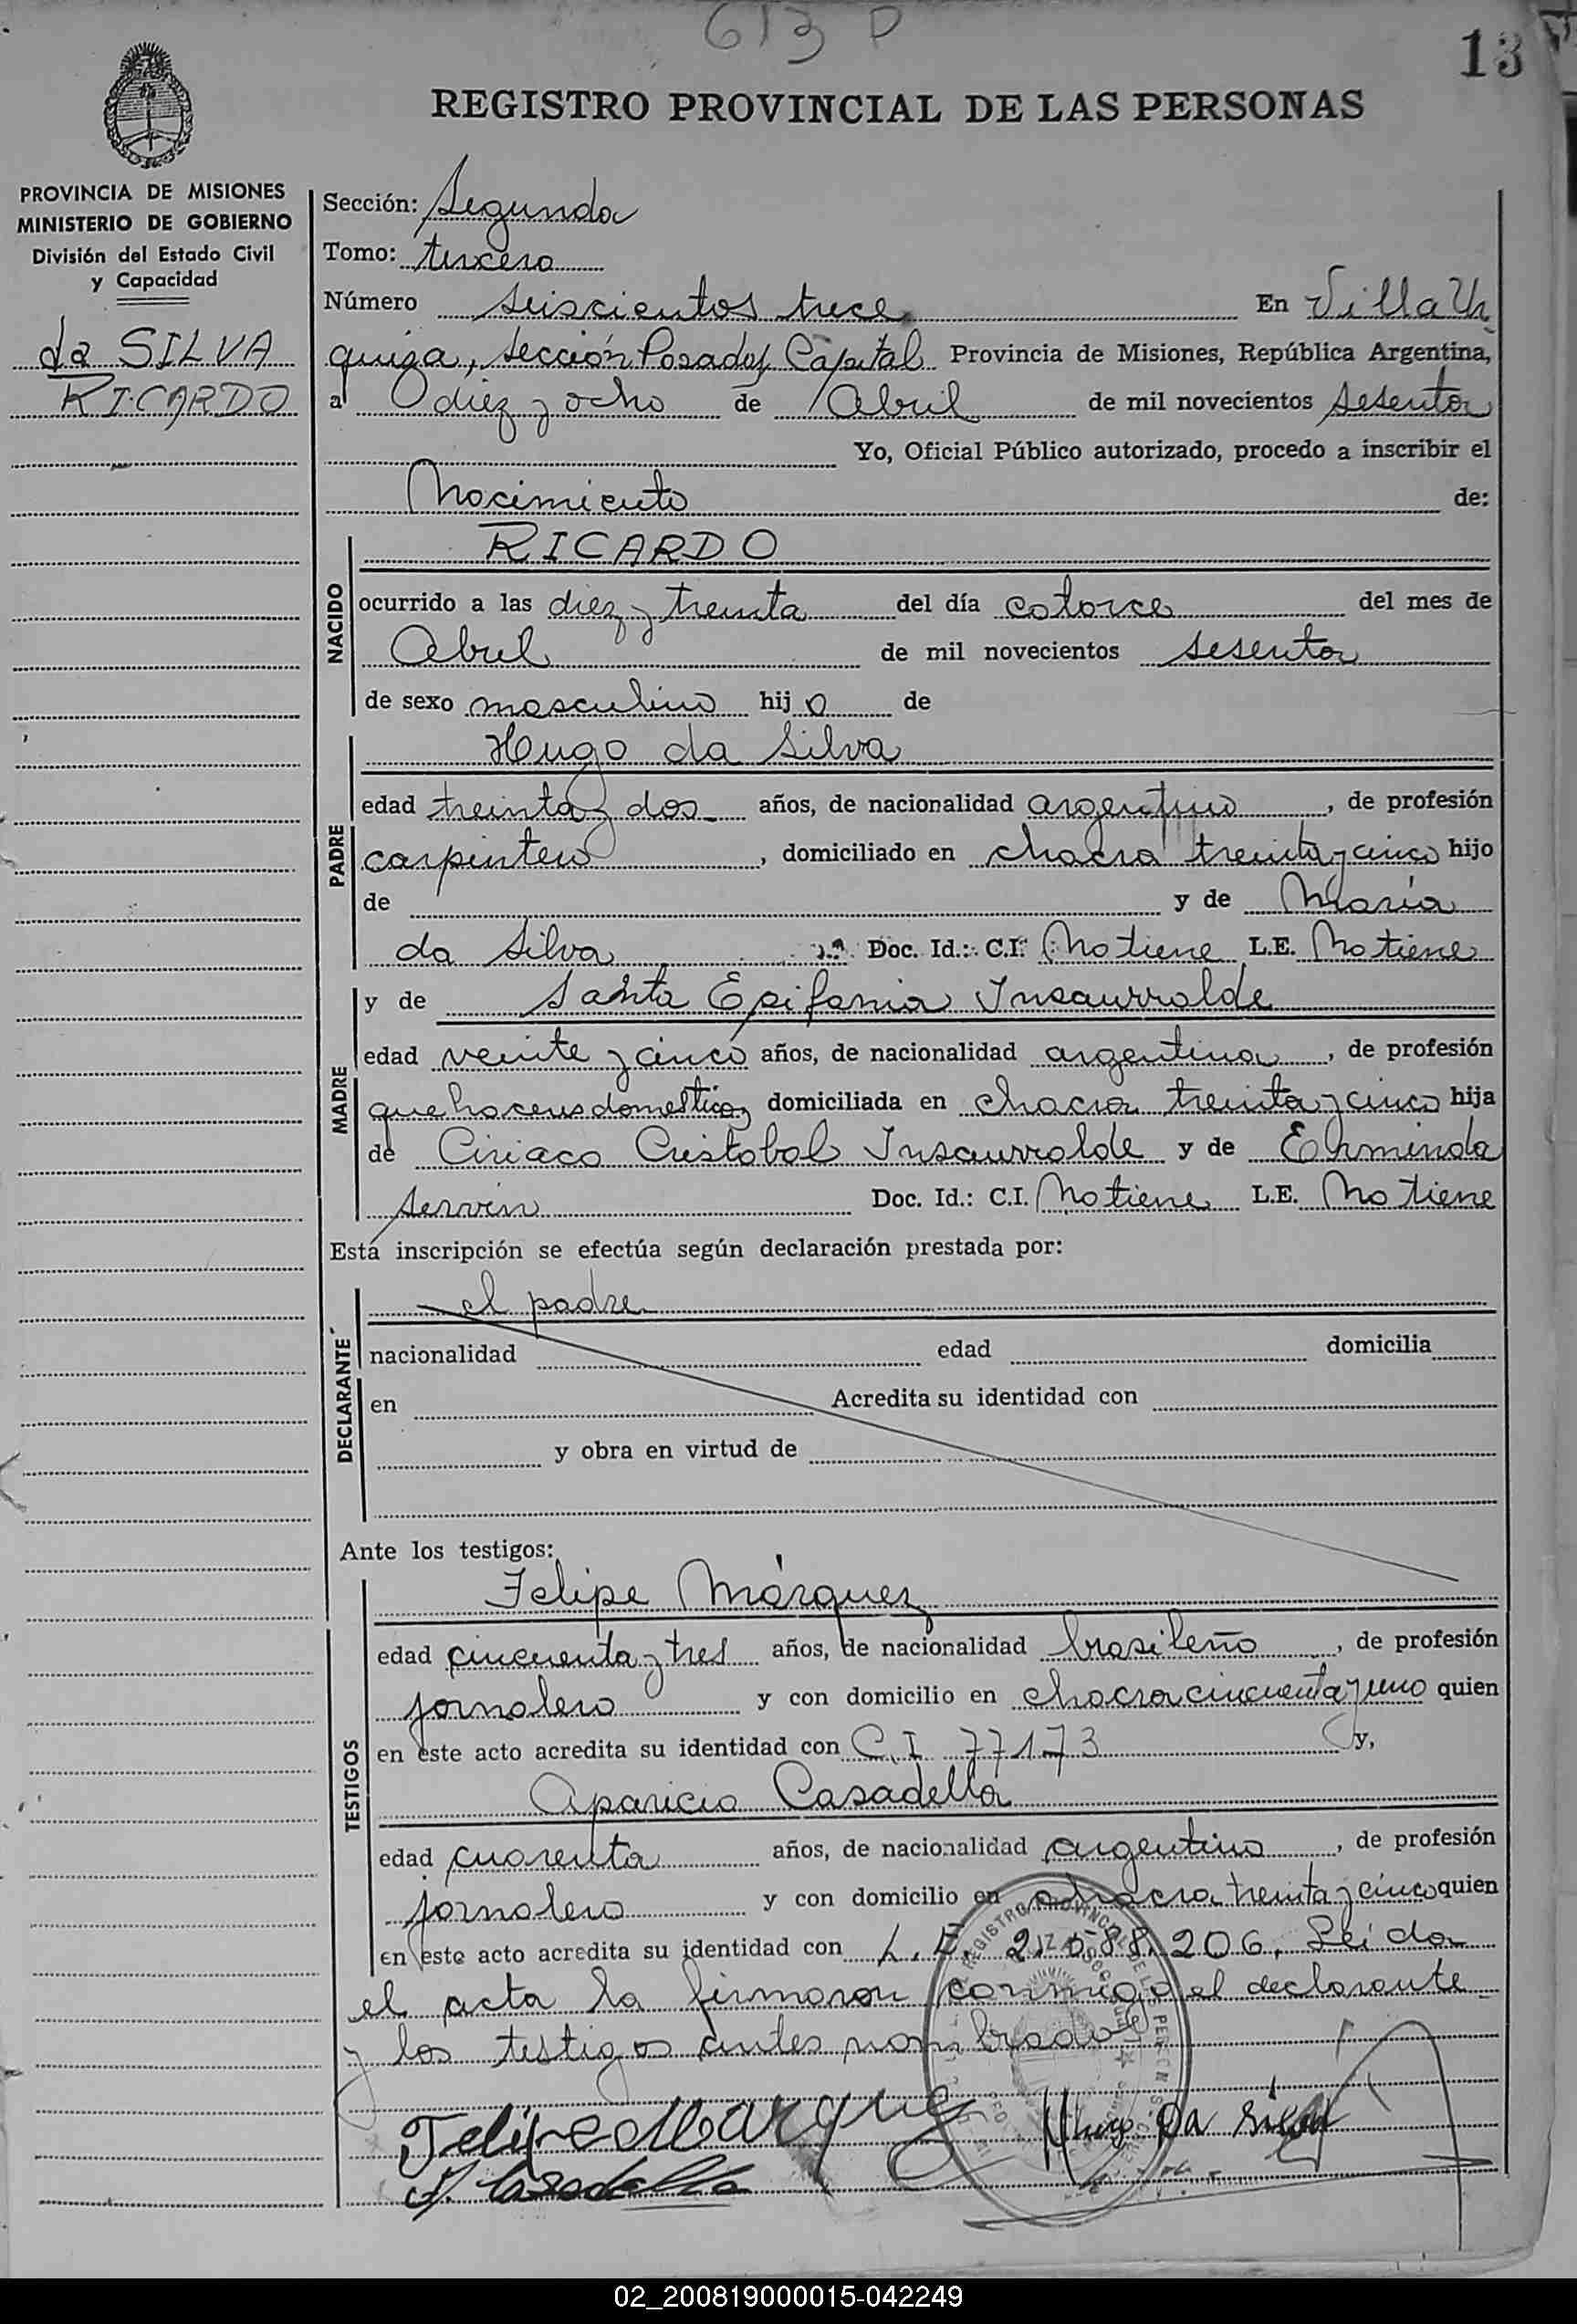 613 P
13
REGISTRO PROVINCIAL DE LAS PERSONAS
PROVINCIA DE MISIONES
MINISTERIO DE GOBIERNO
División del Estado Civil
y Capacidad
da SILVA
RICARDO
Sección: Segunda
Tomo: tercero
Número seiscientos trece En Villa Ur
quiza, sección Posadas Capital Provincia de Misiones, República Argentina,
a diez y ocho de Abril de mil novecientos sesenta
Yo, Oficial Público autorizado, procedo a inscribir el
Nacimiento de:
NACIDO
RICARDO
ocurrido a las diez y treinta del día catorce del mes de
Abril de mil novecientos sesenta
de sexo masculino hijo de
PADRE
Hugo da Silva
edad treinta y dos años, de nacionalidad argentino, de profesión
carpintero, domiciliado en chacra treinta y cinco hijo
de y de María
da Silva Doc. Id.: C.I. No tiene L.E. No tiene
MADRE
y de Santa Epifania Insaurralde
edad veinte y cinco años, de nacionalidad argentina, de profesión
quehaceres domesticos domiciliada en chacra treinta y cinco hija
de Ciriaco Cristobal Insaurralde y de Erminda
Servin Doc. Id.: C.I. No tiene L.E. No tiene
Esta inscripción se efectúa según declaración prestada por:
DECLARANTE
el padre
nacionalidad edad domicilia
en Acredita su identidad con
y obra en virtud de
Ante los testigos:
TESTIGOS
Felipe Márquez
edad cincuenta y tres años, de nacionalidad brasileño, de profesión
jornalero y con domicilio en chacra cincuenta y uno quien
en este acto acredita su identidad con C.I 77173 y,
Aparicio Casadella
edad cuarenta años, de nacionalidad argentino, de profesión
jornalero y con domicilio en chacra treinta y cinco quien
en este acto acredita su identidad con L.E. 2.588.206. Leida
el acta la firmaron conmigo el declarante
y los testigos antes nombrados
Felipe Marquez Hugo Da Silva
A. Casadella
02_200819000015-042249